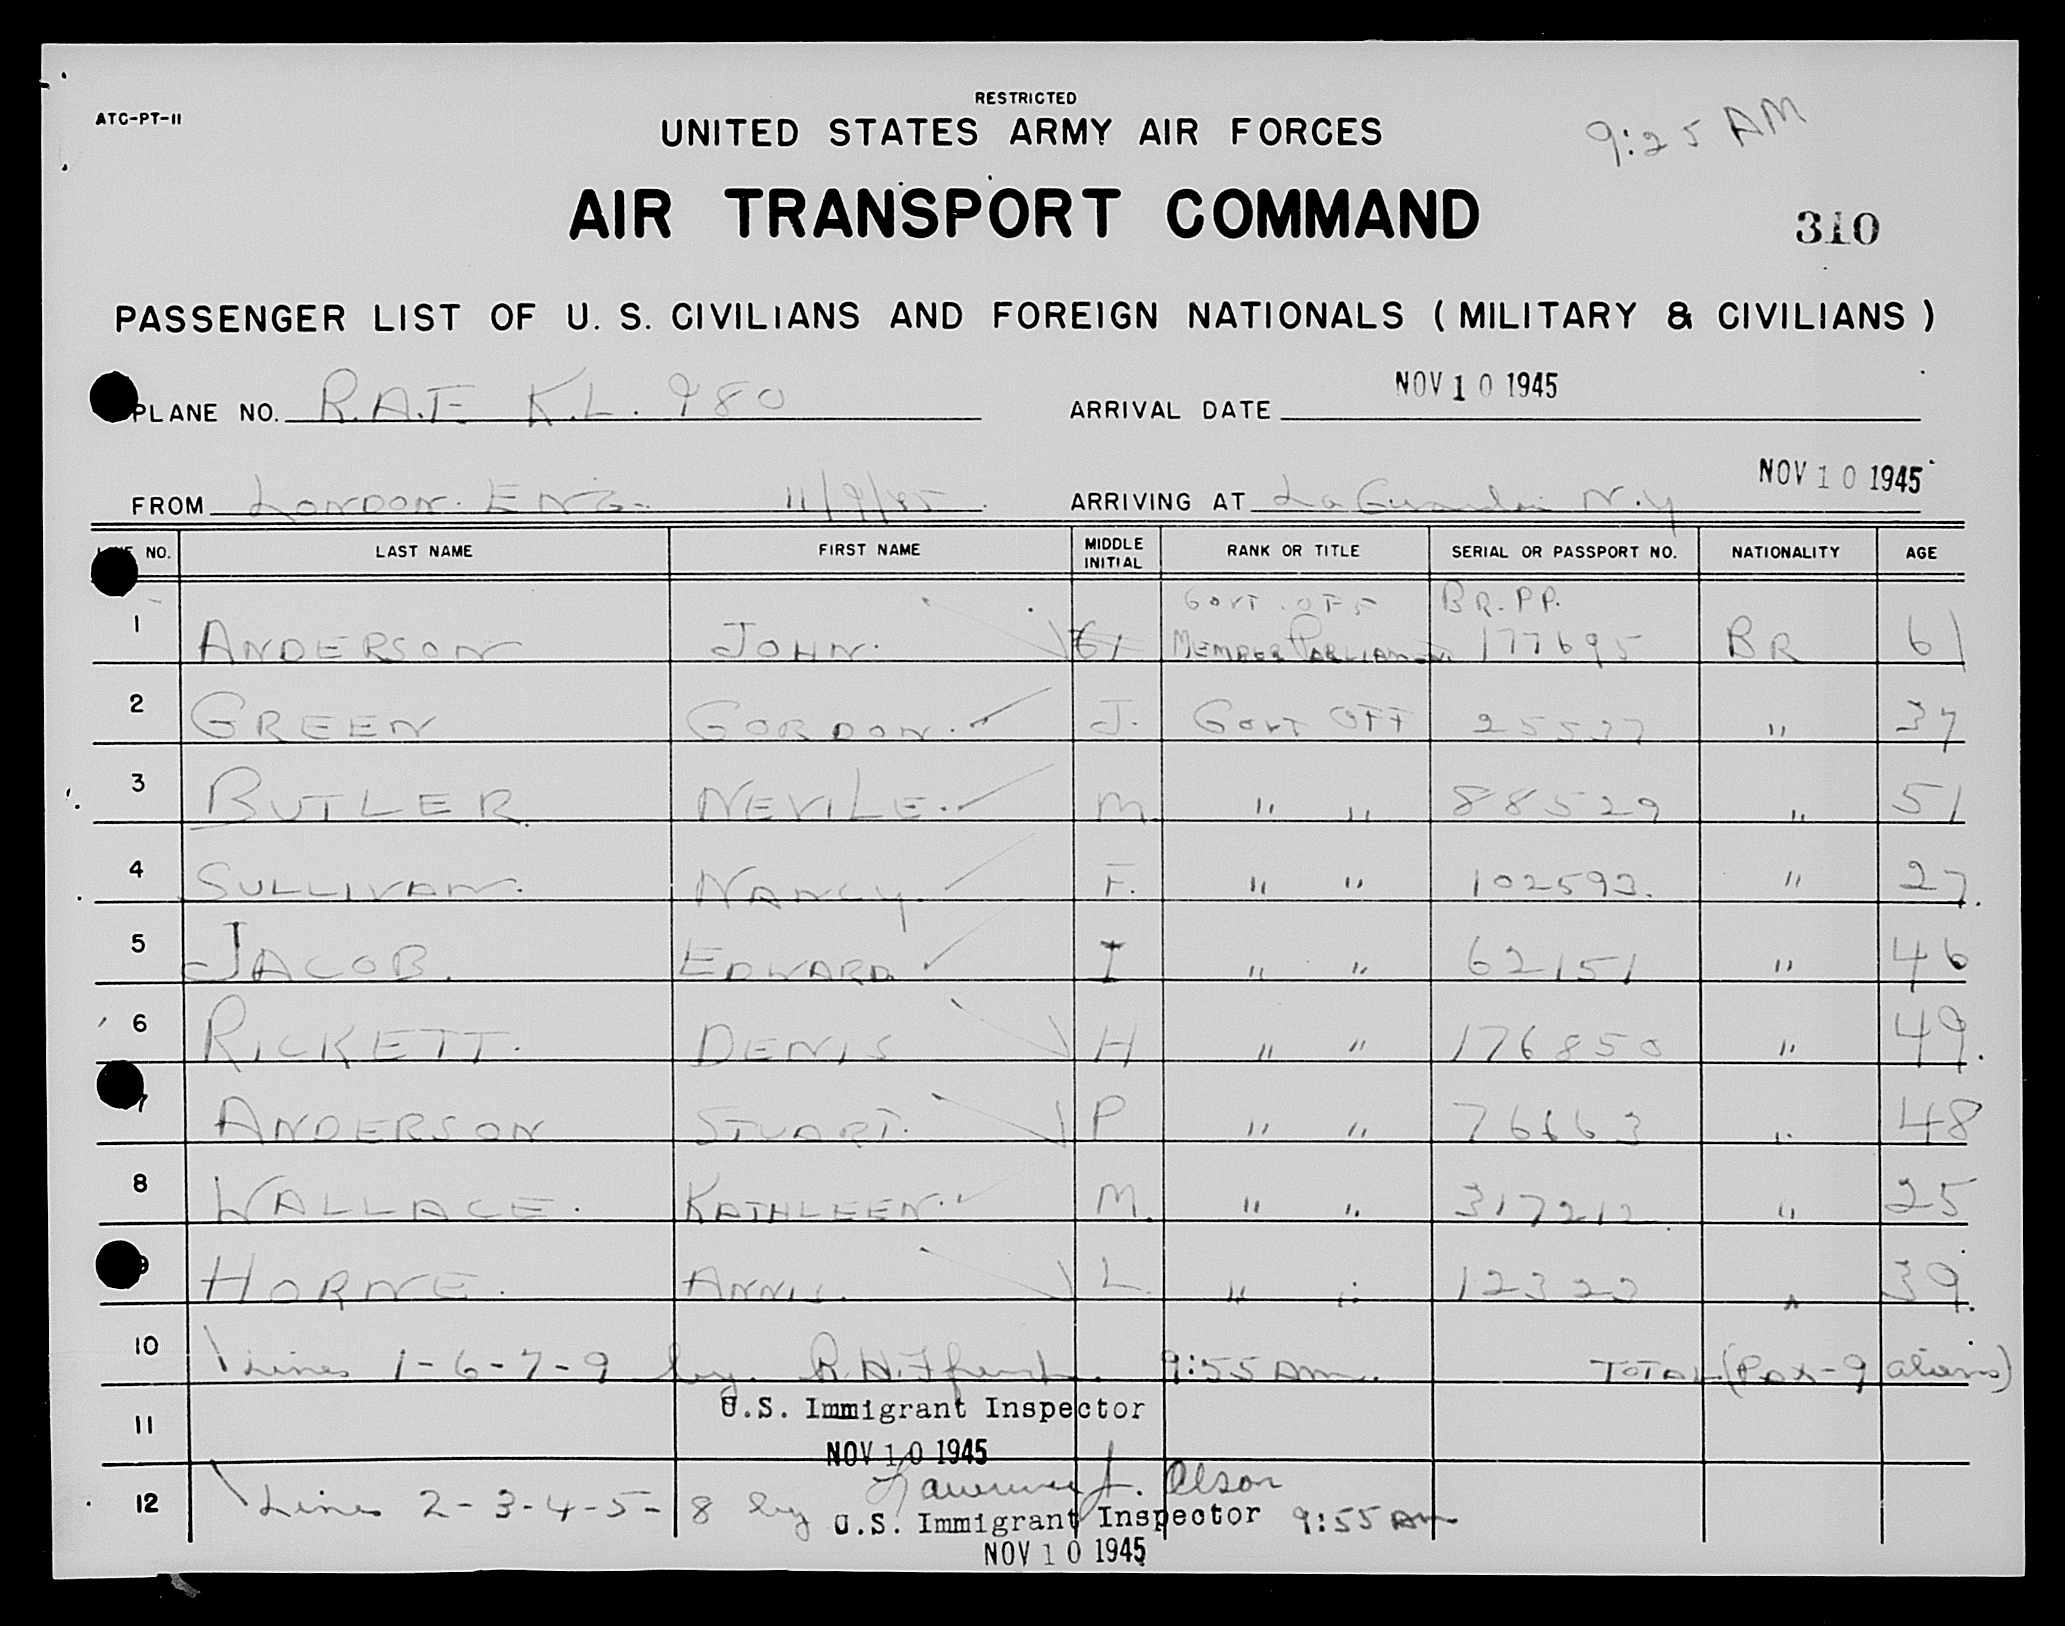 RESTRICTED
ATC-PT-11
UNITED STATES ARMY AIR FORCES
9:25 AM
AIR TRANSPORT COMMAND
310
PASSENGER LIST OF U. S. CIVILIANS AND FOREIGN NATIONALS ( MILITARY & CIVILIANS )
PLANE NO. R.A.F. K.L. 980 ARRIVAL DATE NOV 10 1945
FROM LONDON. ENG. 11/9/45. ARRIVING AT La Guardia N.Y NOV 10 1945
NO. LAST NAME FIRST NAME MIDDLE INITIAL RANK OR TITLE SERIAL OR PASSPORT NO. NATIONALITY AGE
GOVT. OFF BR. PP.
1 ANDERSON JOHN. MEMBER PARLIAMENT. 177695 BR 61
2 GREEN GORDON. J. GOVT OFF 25537 " 37
3 BUTLER. NEVILE. M. " " 88529 " 51
4 SULLIVAN. NANCY. F. " " 102593. " 27.
5 JACOB. EDWARD. I " " 62151 " 46
6 RICKETT. DENIS H " " 176850 " 49.
7 ANDERSON STUART. P " " 76663 " 48
8 WALLACE. KATHLEEN. M. " " 317212. " 25
9 HORNE. L. " " 12323 " 39.
10 Lines 1-6-7-9 by R.H. 9:55 AM. TOTAL (Pax-9 aliens)
11 U.S. Immigrant Inspector
NOV 10 1945
12 Lines 2-3-4-5-8 by Lawrence J. Olson
U.S. Immigrant Inspector 9:55 AM
NOV 10 1945